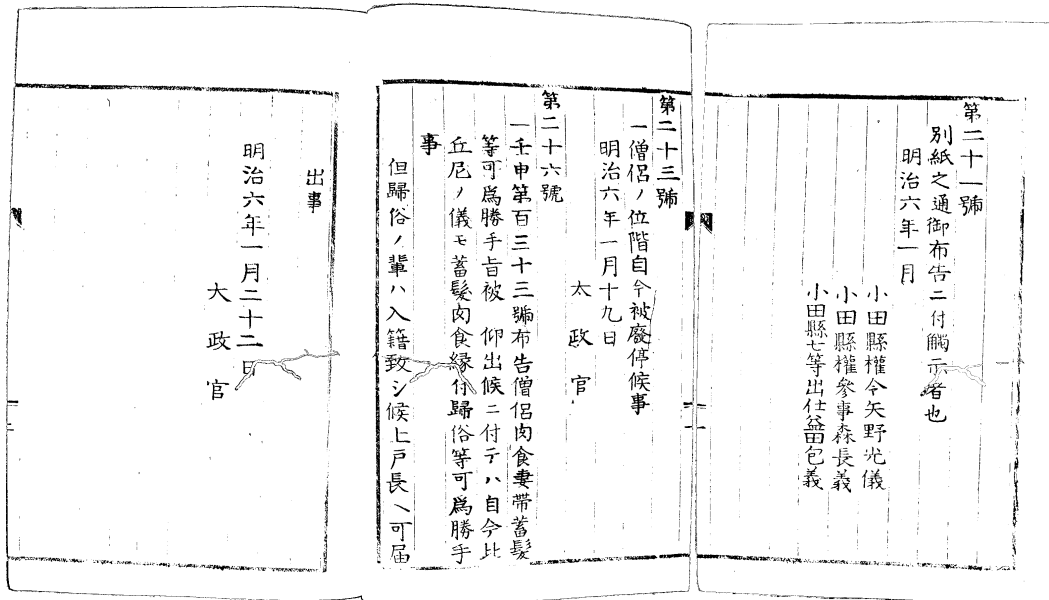 第二十一號
別紙之通御布告ニ付觸示者也
明治六年一月
小田縣權令矢野光儀
小田縣權參事森長義
小田縣七等出仕益田包義
第二十三號
一僧侶ノ位階自今被廢停候事
明治六年一月十九日
太政官
第二十六號
一壬申第百三十三號布告僧侶肉食妻帶蓄髮
等可爲勝手旨被　仰出候ニ付テハ自今比
丘尼ノ儀モ蓄髮肉食縁付歸俗等可爲勝手
事
但歸俗ノ輩ハ入籍致シ候上戸長ヘ可届
出事
明治六年一月二十二日
大政官